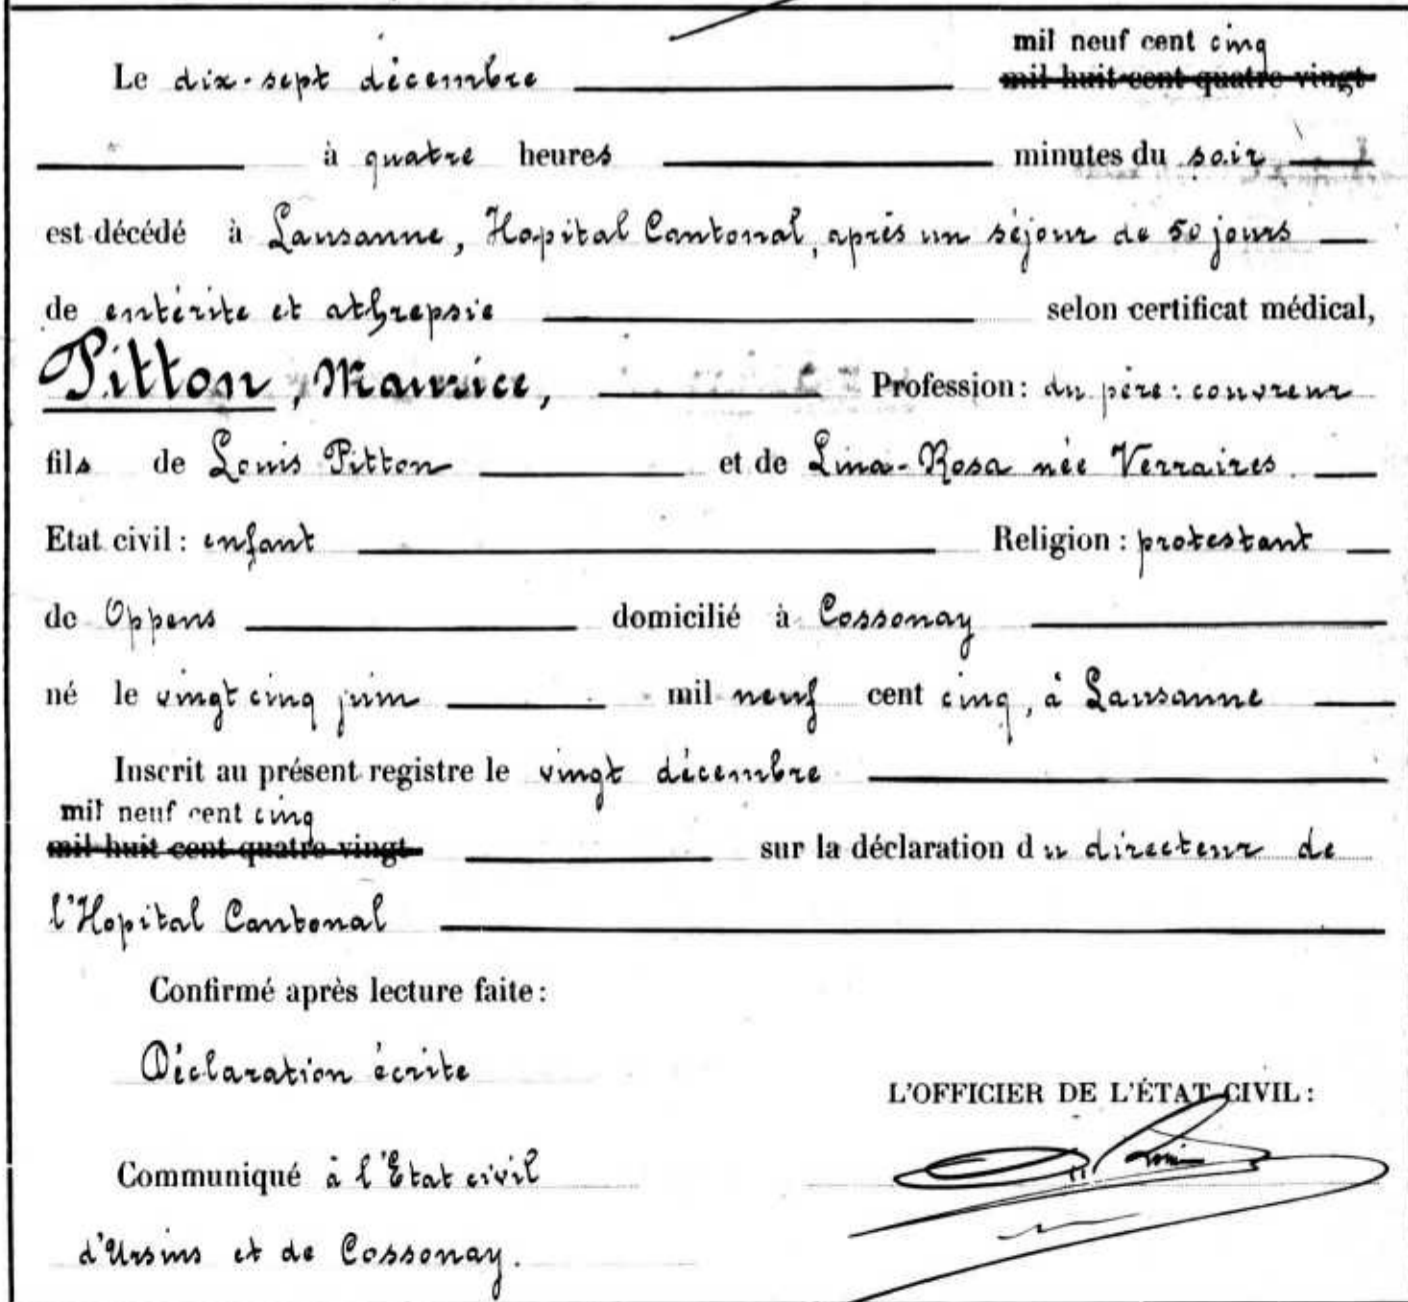 mil neuf cent cinq
Le dix-sept décembre mil huit cent quatre vingt
à quatre heures minutes du soir
est décédé à Lausanne, Hopital Cantonal, après un séjour de 50 jours
de entérite et athrepsie selon certificat médical,
Pitton, Maurice, Profession : du père : couvreur
fils de Louis Pitton et de Lina-Rosa née Verraires
Etat civil : enfant Religion : protestant
de Oppens domicilié à Cossonay
né le vingt cinq juin mil neuf cent cinq, à Lausanne
Inscrit au présent registre le vingt décembre
mil neuf cent cinq
mil huit cent quatre vingt sur la déclaration du directeur de
l'Hopital Cantonal
Confirmé après lecture faite :
Déclaration écrite
L'OFFICIER DE L'ÉTAT CIVIL :
Communiqué à l'Etat civil
d'Ursins et de Cossonay.